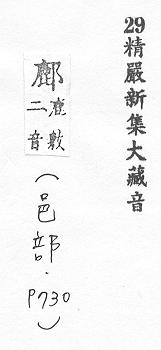 29精嚴新集大藏音
鄜
鹿敷
二音
（邑部．P730）